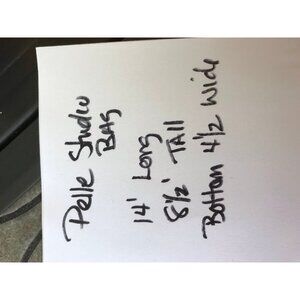 Pelle Studio
BAG
14' Long
8 1/2' TAll
Bottom 4 1/2 wide